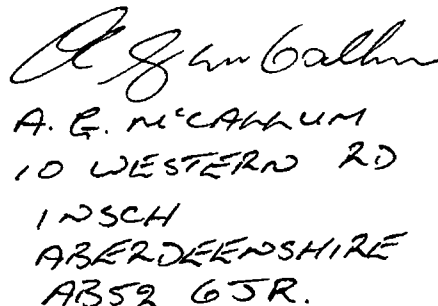 A. G. McCALLUM
10 WESTERN RD
INSCH
ABERDEENSHIRE
AB52 6JR.